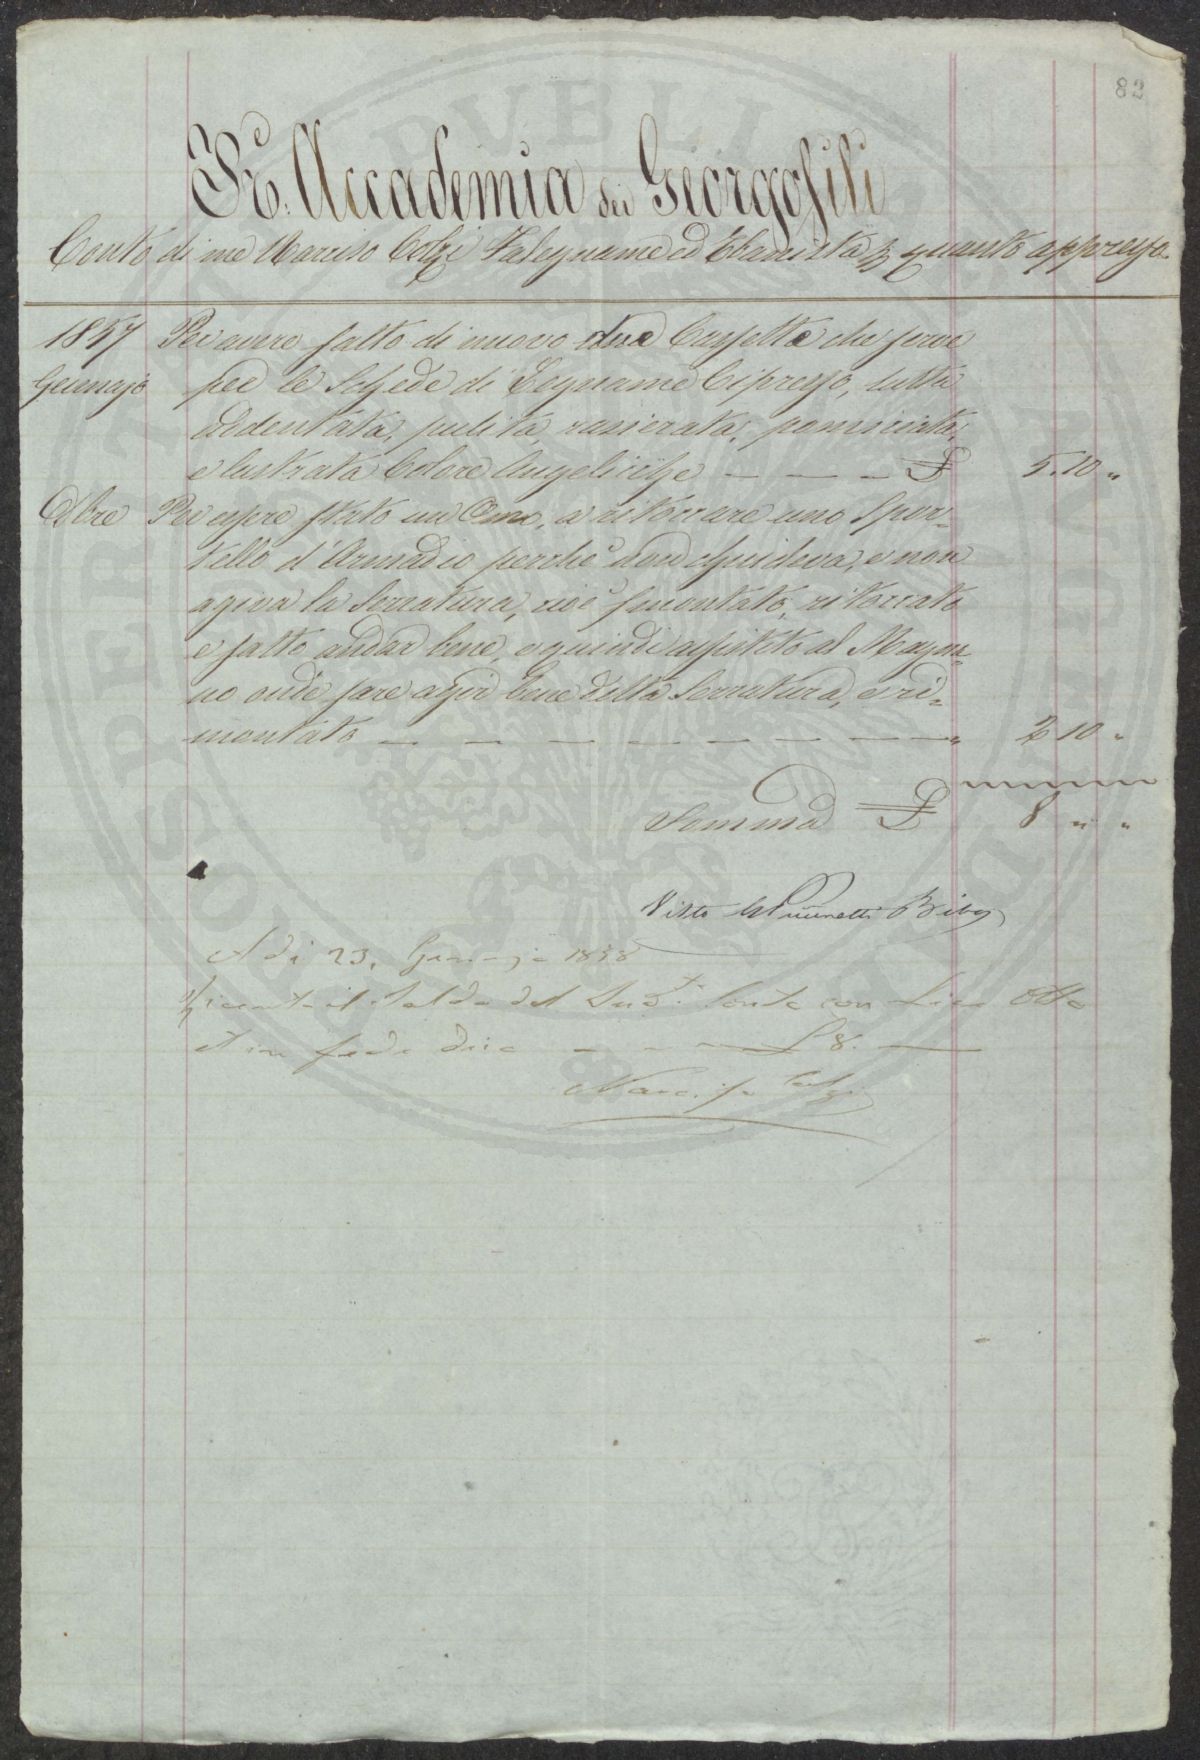 82
I. e R. Accademia dei Georgofili
Conto di me Narciso Colzi Falegname ed Ebanista p quanto appresso
1857 Per avere fatto di nuovo due Cassette che serve
Gennajo per le Schede di Legname Cipresso, tutta
addentata, pulita, rasierata, pomiciata,
e lustrata Colore Angelicche — — — £ 5. 10 "
Xbre Per essere stato un Omo, a ritoccare uno Spor-
tello d'Armadio perchè non chiudeva, e non
agiva la Serratura, cioè smontato, ritoccato
e fatto andar bene, e quindi assistito al Magna-
no onde fare agir bene detta Serratura, e ri-
montato — — — — — — — — " 2 10 "
Somma £ 8 " "
Visto Bib
A di 23, Gennajo 1858
Ricevuto il Saldo del Sudº Conto con Lire Otto
et in fede dico — — — £ 8. —
Narciso Colzi